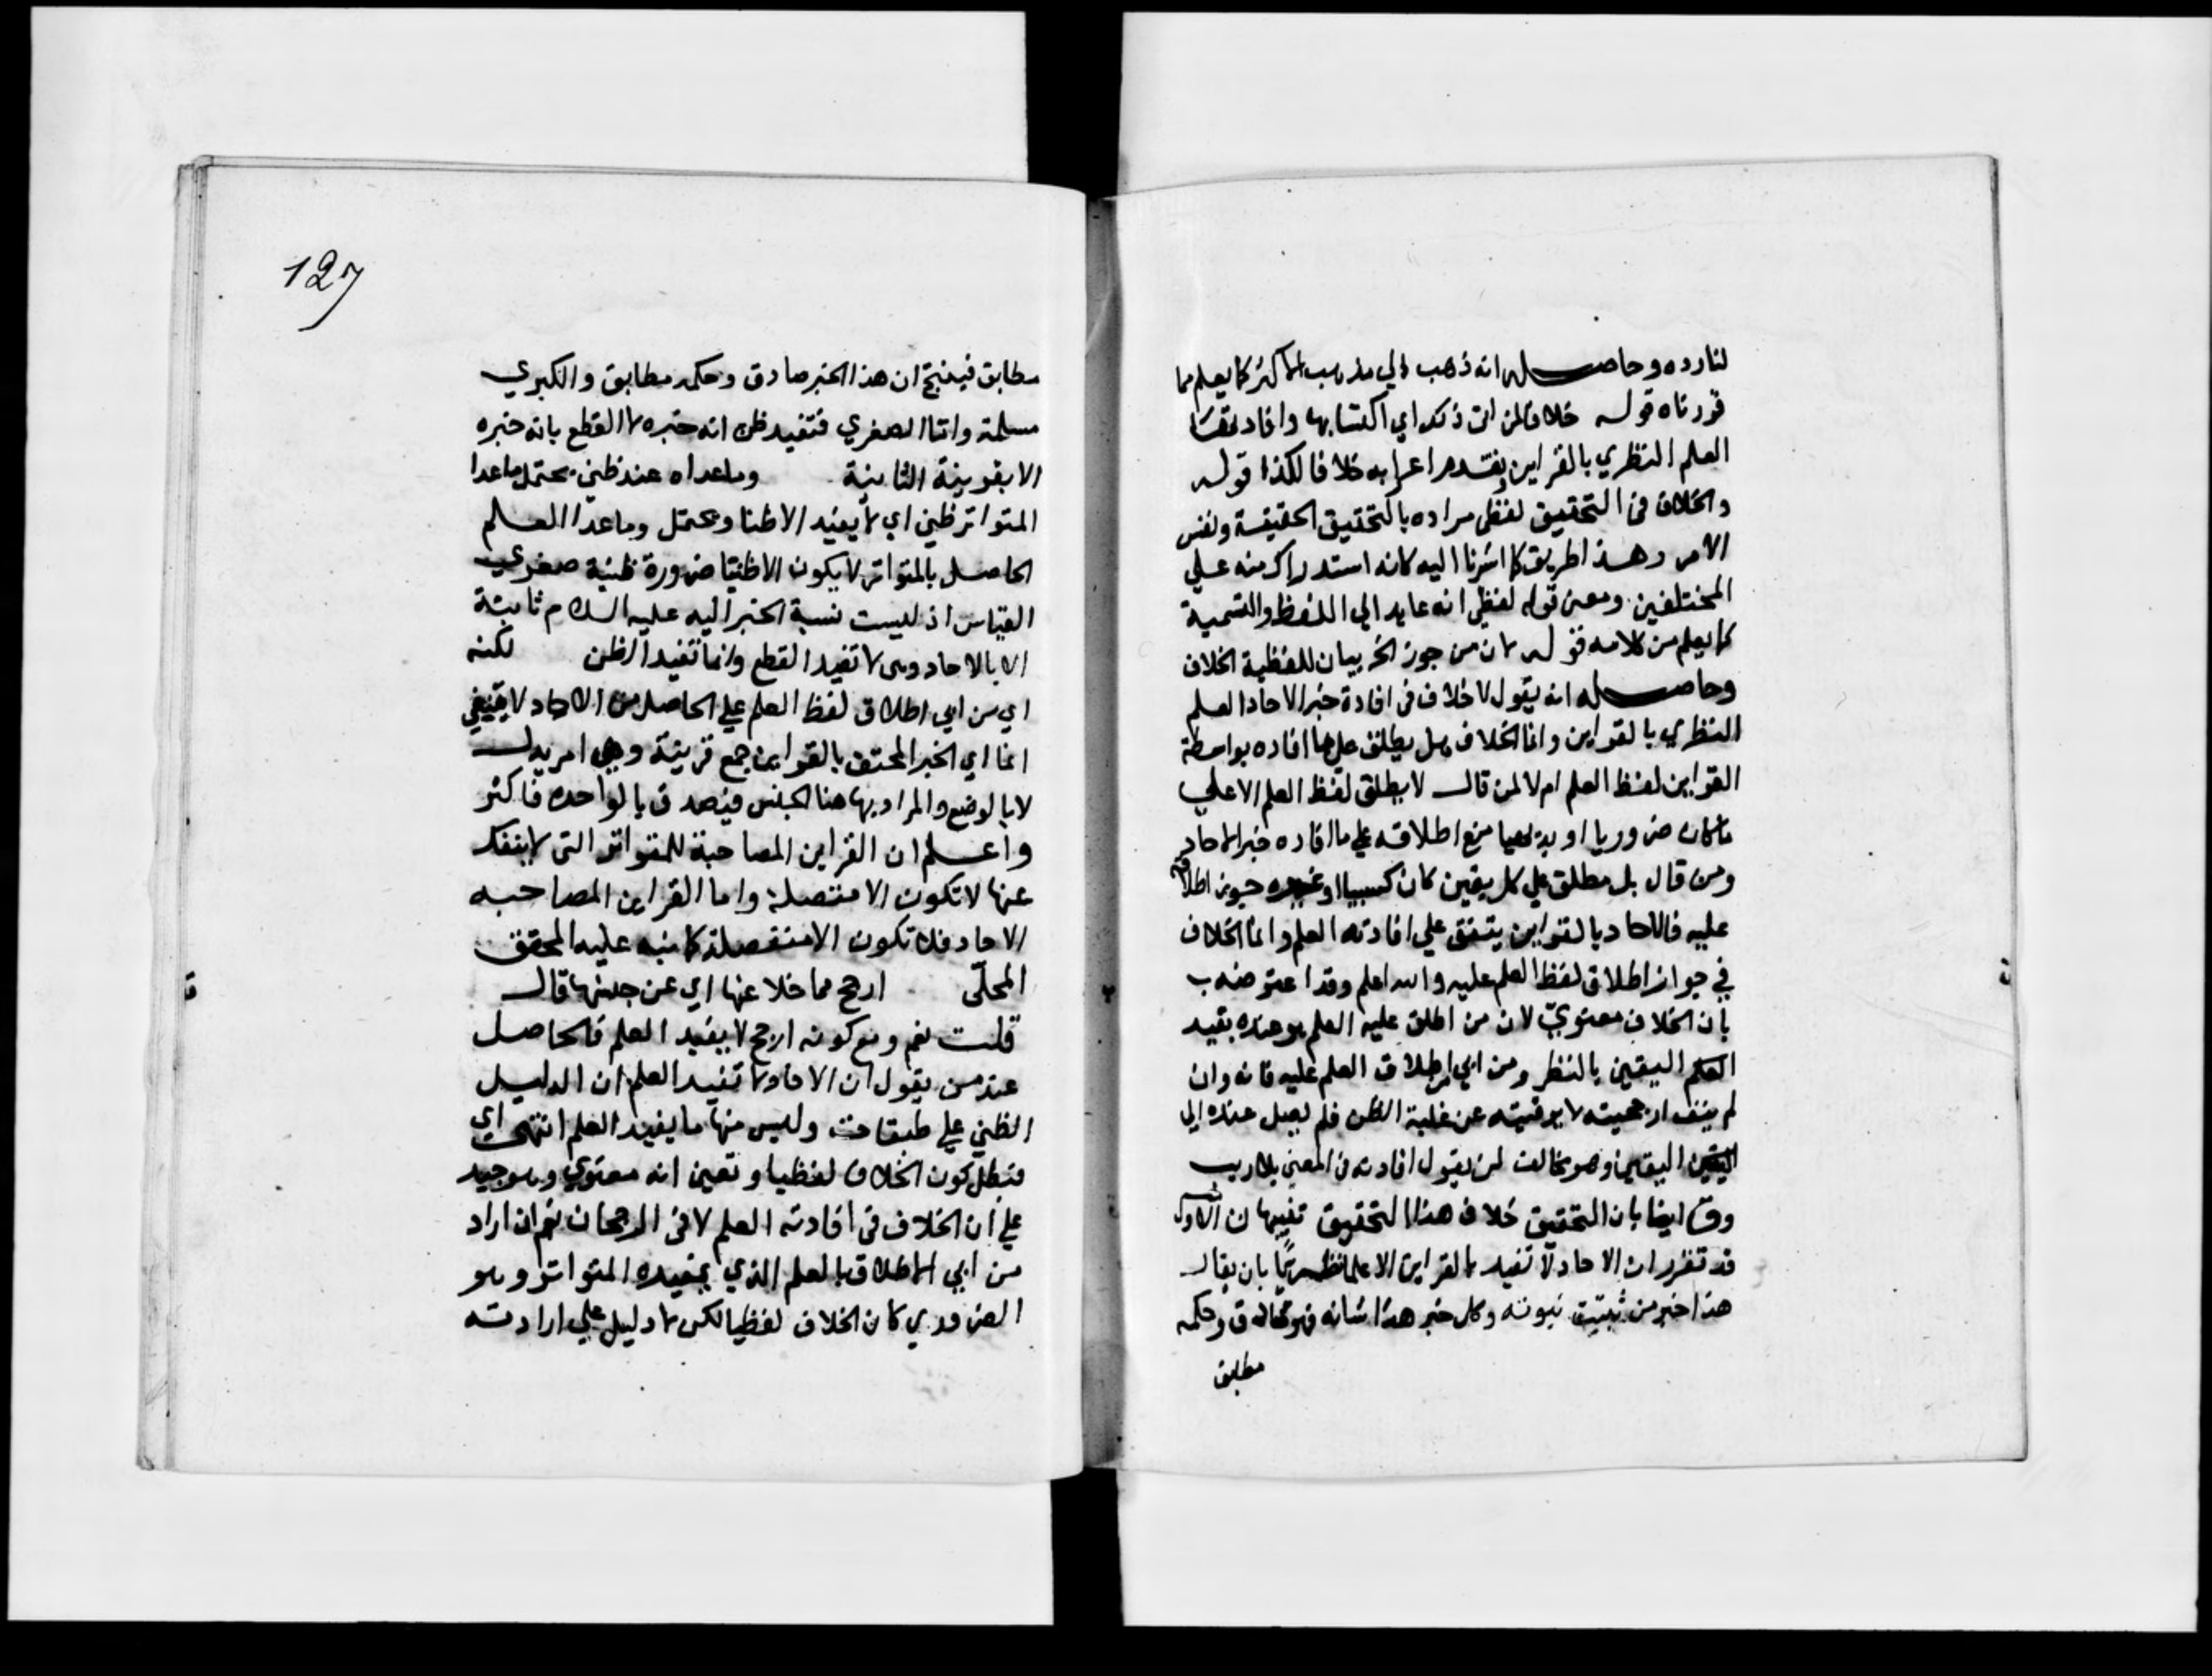 لنا رده وحاصله انه ذهب الي مذهب الاكثر كما يعلم مما
قررناه قوله خلافا لمن ابي ذلك اي اكتسابها وافادتها
العلم النظري بالقراين وتقدم اعرابه خلافا لكذا قوله
والخلاف في التحقيق لفظي مراده بالتحقيق الحقيقة ونفس
الامر وهذا طريق كما اشرنا اليه كانه استدراك منه علي
المختلفين ومعني قوله لفظي انه عايد الي اللفظ والتسمية
كما يعلم من كلامه قوله لان من جوز الخ بيان للفظية الخلاف
وحاصله انه يقول لا خلاف في افادة خبر الاحاد العلم
النظري بالقراين وانما الخلاف هل يطلق علي ما افاده بواسطة
القراين لفظ العلم ام لا لمن قال لا يطلق لفظ العلم الا علي
ما كان ضروريا او بديهيا منع اطلاقه علي ما افاده خبر الاحاد
ومن قال بل مطلق علي كل يقين كان كسبيا او غيره جوز اطلاقه
عليه فالاحاد بالقراين يتفق علي افادته العلم وانما الخلاف
في جواز اطلاق لفظ العلم عليه والله اعلم وقد اعترضه ب
بان الخلاف معنوي لان من اطلق عليه العلم هو عنده يفيد
العلم اليقين بالنظر ومن ابي اطلاق العلم عليه فانه وان
لم ينف ارجحيته لا يرقيه عن غلبة الظن فلم يصل عنده الي
اليقين اليقين وهو مخالف لمن يقول افادته في المعني بلا ريب
وق ايضا بان التحقيق خلاف هذا التحقيق تنبيهان الاول
قد تقرر ان الاحاد لا تفيد بالقراين الا علما نظريا بان يقال
هذا خبر من ثبتت نبوته وكل خبر هذا شانه فهو صادق وحكمه
مطابق
127
مطابق فينتج ان هذا الخبر صادق وحكمه مطابق والكبري
مسلمة واما الصغري فتفيد ظن انه خبره لا القطع بانه خبره
الا بقرينة الثانية وما عداه عند ظني محتمل ما عدا
المتواتر ظني اي لا يفيد الا ظنا ومحتمل وما عدا العلم
الحاصل بالمتواتر لا يكون الا ظنيا ضرورة ظنية صغري
القياس اذ ليست نسبة الخبر اليه عليه السلام ثابتة
الا بالاحاد وهي لا تفيد القطع وانما تفيد الظن لكنه
اي من ابي اطلاق لفظ العلم علي الحاصل من الاحاد لا ينفي
انما اي الخبر المحتف بالقراين جمع قرينة وهي امر يدل
لا بالوضع والمراد بها هنا الجنس فيصدق بالواحده فاكثر
واعلم ان القراين المصاحبة للمتواتر التي لا ينفك
عنها لا تكون الا متصلة واما القراين المصاحبه
الاحاد فلا تكون الا منفصلة كما نبه عليه المحقق
المحلّي ارجح مما خلا عنها اي عن جنسها قال
قلت نعم ومع كونه ارجح لا يفيد العلم فالحاصل
عند من يقول ان الاحاد لا تفيد العلم ان الدليل
الظني علي طبقات وليس منها ما يفيد العلم انتهي اي
فبطل كون الخلاف لفظيا وتعين انه معنوي وهو جيد
علي ان الخلاف في افادته العلم لا في الرجحان نعم ان اراد
من ابي الاطلاق بالعلم الذي يفيده المتواتر وهو
الضروري كان الخلاف لفظيا لكن لا دليل علي ارادته